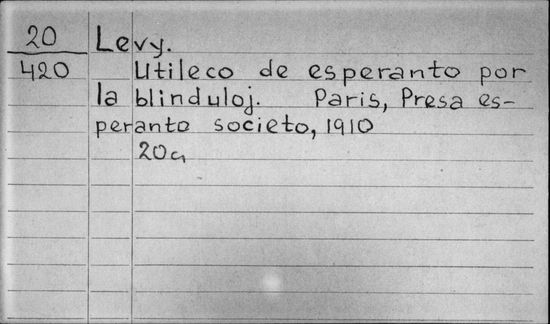 20 Levy.
420 Utileco de esperanto por
la blinduloj. Paris, Presa es-
peranto societo, 1910
20a